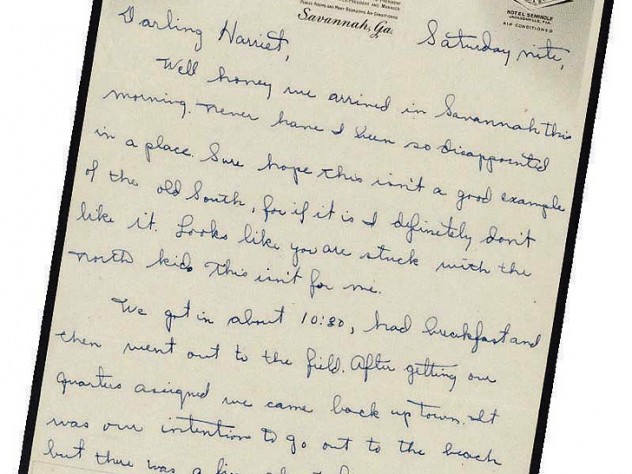 Savannah, Ga.
HOTEL SEMINOLE
AIR CONDITIONED
Saturday nite,
Darling Harriet,
Well honey we arrived in Savannah this
morning. Never have I been so disappointed
in a place. Sure hope this isn't a good example
of the old South, for if it is I definitely don't
like it. Looks like you are stuck with the
North kids this isn't for me.
We got in about 10:30, had breakfast and
then went out to the field. After getting our
quarters assigned we came back up town. It
was our intention to go out to the beach
but there was a